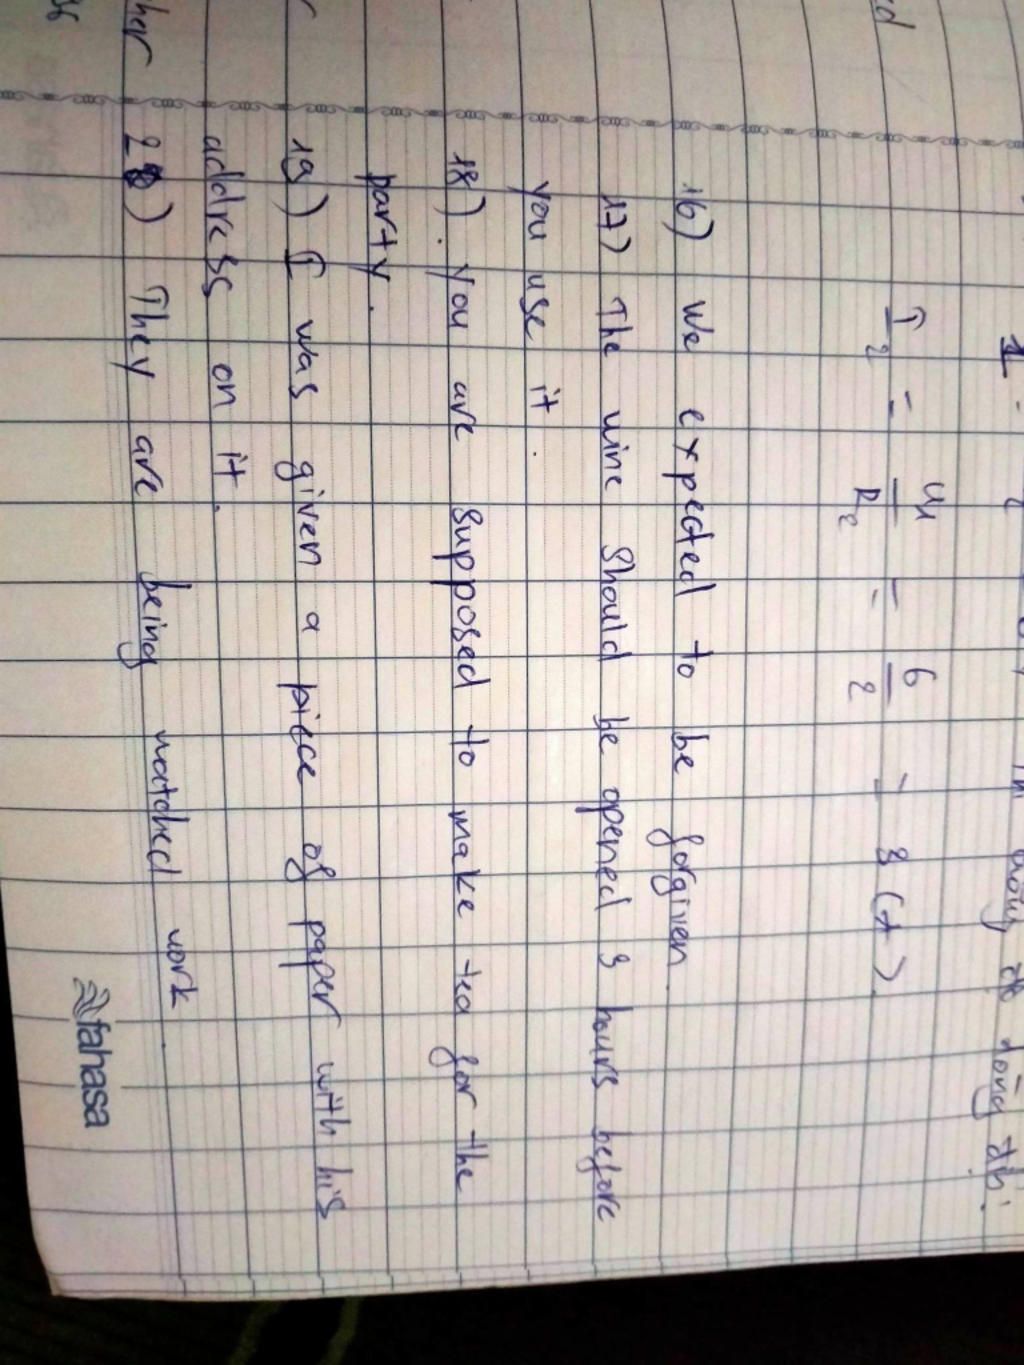 I₂ = U₁/R₂ = 6/2 = 3 (A)
16) We expected to be forgiven.
17) The wine should be opened 3 hours before
you use it.
18) You are supposed to make tea for the
party.
19) I was given a piece of paper with his
address on it.
20) They are being watched work.
fahasa